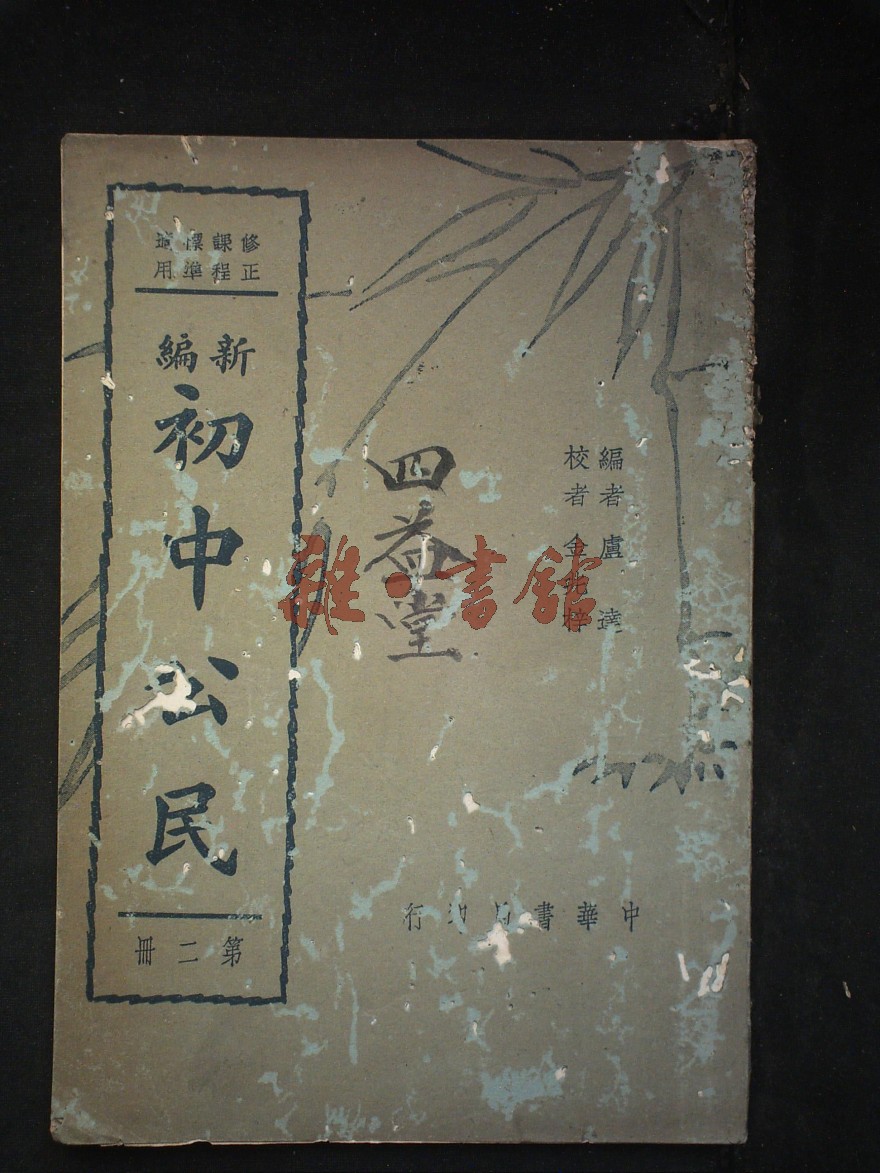 修正課程標準適用
新編
初中公民
第二冊
編者盧達
校者金兆梓
四益堂
中華書局印行
雜·書館